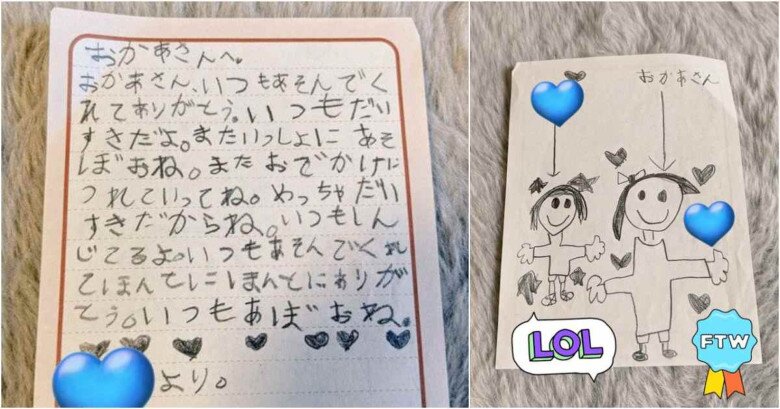 おかあさんへ。
おかあさん、いつもあそんでく
れてありがとう。いつもだい
すきだよ。またいっしょに あそ
ぼおね。またおでかけに
つれていってね。めっちゃだい
すきだからね。いつもしん
じてるよ。いつもあそんでくれ
てほんとにほんとにありが
とう。いつもあぼおね。
より。
おかあさん
LOL
FTW